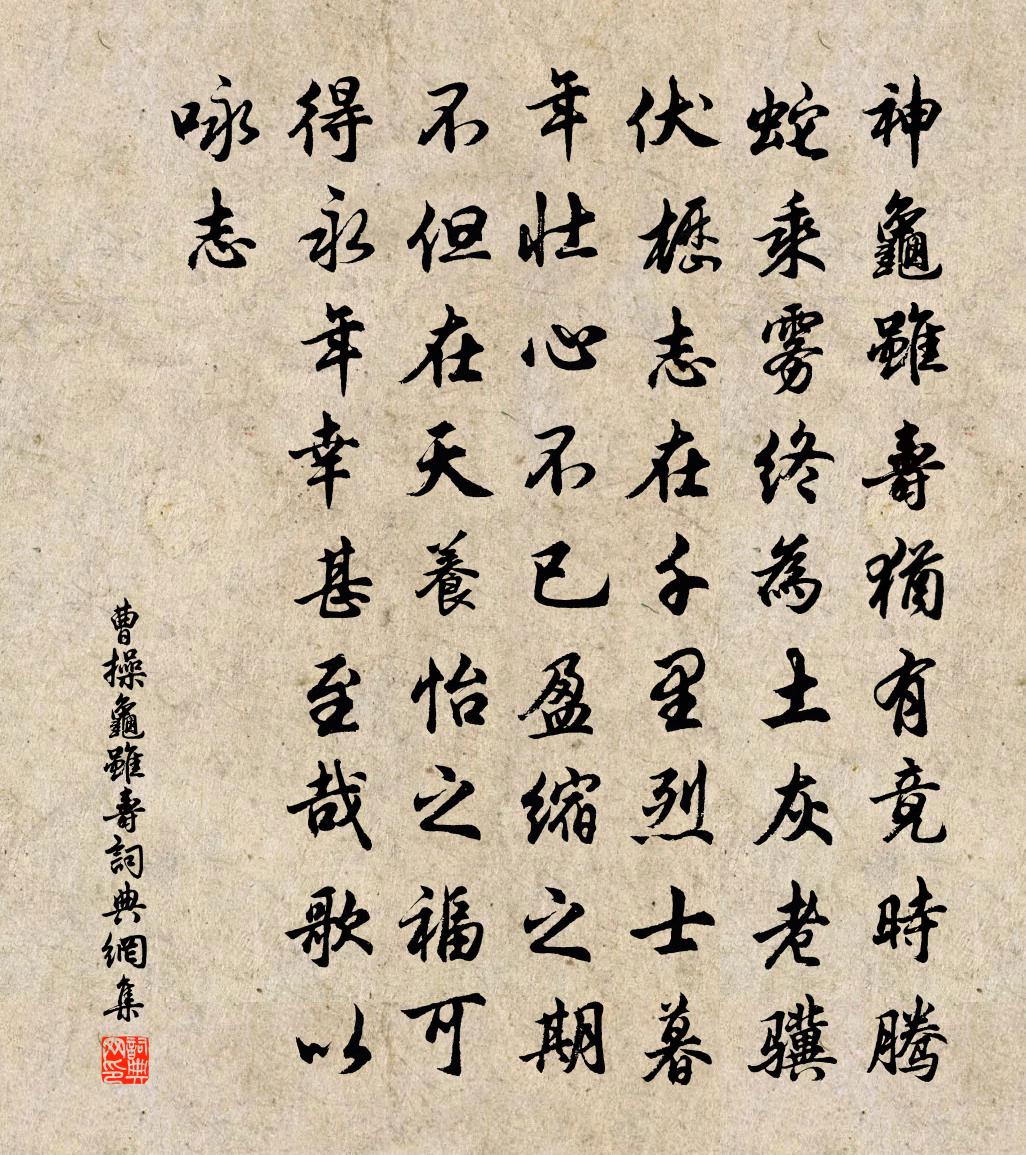 神龜雖壽猶有竟時腾
蛇乘雾终為土灰老骥
伏櫪志在千里烈士暮
年壮心不已盈缩之期
不但在天養怡之福可
得永年幸甚至哉歌以
咏志
曹操龜雖壽詞典網集
詞典网印